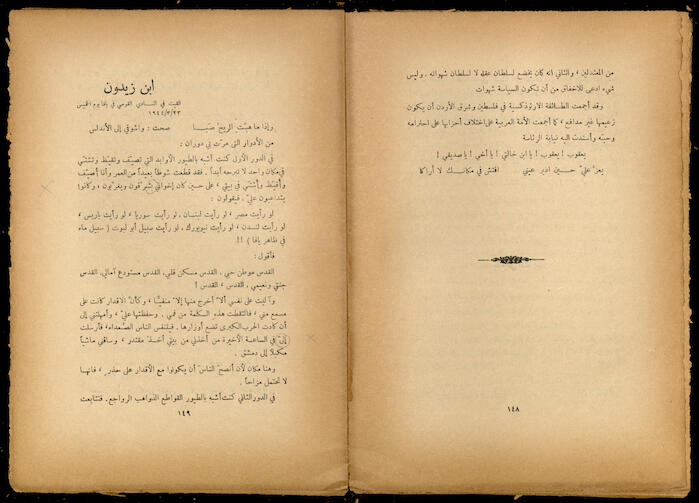 من المعتدلين ، والثاني انه كان يخضع لسلطان عقله لا لسلطان شهواته . وليس
شيء ادعى للاخفاق من أن تكون السياسة شهوات
وقد أجمعت الطائفة الارثوذكسية في فلسطين وشرق الأردن أن يكون
زعيمها غير مدافع ، كما أجمعت الأمة العربية على اختلاف أحزابها على احترامه
وحبّه وأسندت اليه نيابة الرئاسة
يعقوب ! يعقوب ! يا ابن خالتي ! يا أخي ! يا صديقي !
يعزّ عليّ حسين ادير عيني افتش في مكانك لا أراكا
١٤٨
ابن زيدون
القيت في النادي القومي في يافا يوم الخميس
١٩٤٤/٣/٢٣
وإذا ما هبّت الريح صَبَا صحت : واشوقي إلى الأندلس
من الأدوار التي مرّت بي دوران :
في الدور الأول كنت أشبه بالطيور الأوابد التي تصيّف وتقيّظ وتشتّي
في مكان واحد لا تبرحه أبداً . فقد قطعت شوطاً بعيداً من العمر وأنا أصيّف
وأقيّظ وأشتّي في بيتي ، على حين كان إخواني يشرّقون ويغرّبون ، وكانوا
يتداعبون عليّ . فيقولون :
لو رأيت مصر ، لو رأيت لبنان . لو رأيت سوريا ، لو رأيت باريس ،
لو رأيت لندن ، لو رأيت نيويورك . لو رأيت سبيل أبو نبوت ( سبيل ماء
في ظاهر يافا ) !!
فأقول :
القدس موطن حبي . القدس مسكن قلبي. القدس مستودع آمالي. القدس
جنتي ونعيمي . القدس ، القدس !
وآليت على نفسي ألاّ أخرج منها إلاّ منفيّاً ، وكأنّ الاقدار كانت على
مسمع مني ، فالتقطت هذه الكلمة من فمي . وحفظتها عليّ ، وأمهلتني إلى
أن كادت الحرب الكبرى تضع أوزارها . فيتنفس الناس الصعداء، فأرسلت
إليّ في الساعة الأخيرة من أخذني من بيتي أخذ مقتدر ، وساقني ماشياً
مكبّلا إلى دمشق .
وهنا مكان لأن أنصح الناس أن يكونوا مع الأقدار على حذر . فانها
لا تحتمل مزاحاً .
في الدور الثاني كنت أشبه بالطيور القواطع الذواهب الرواجع . فتتابعت
١٤٩